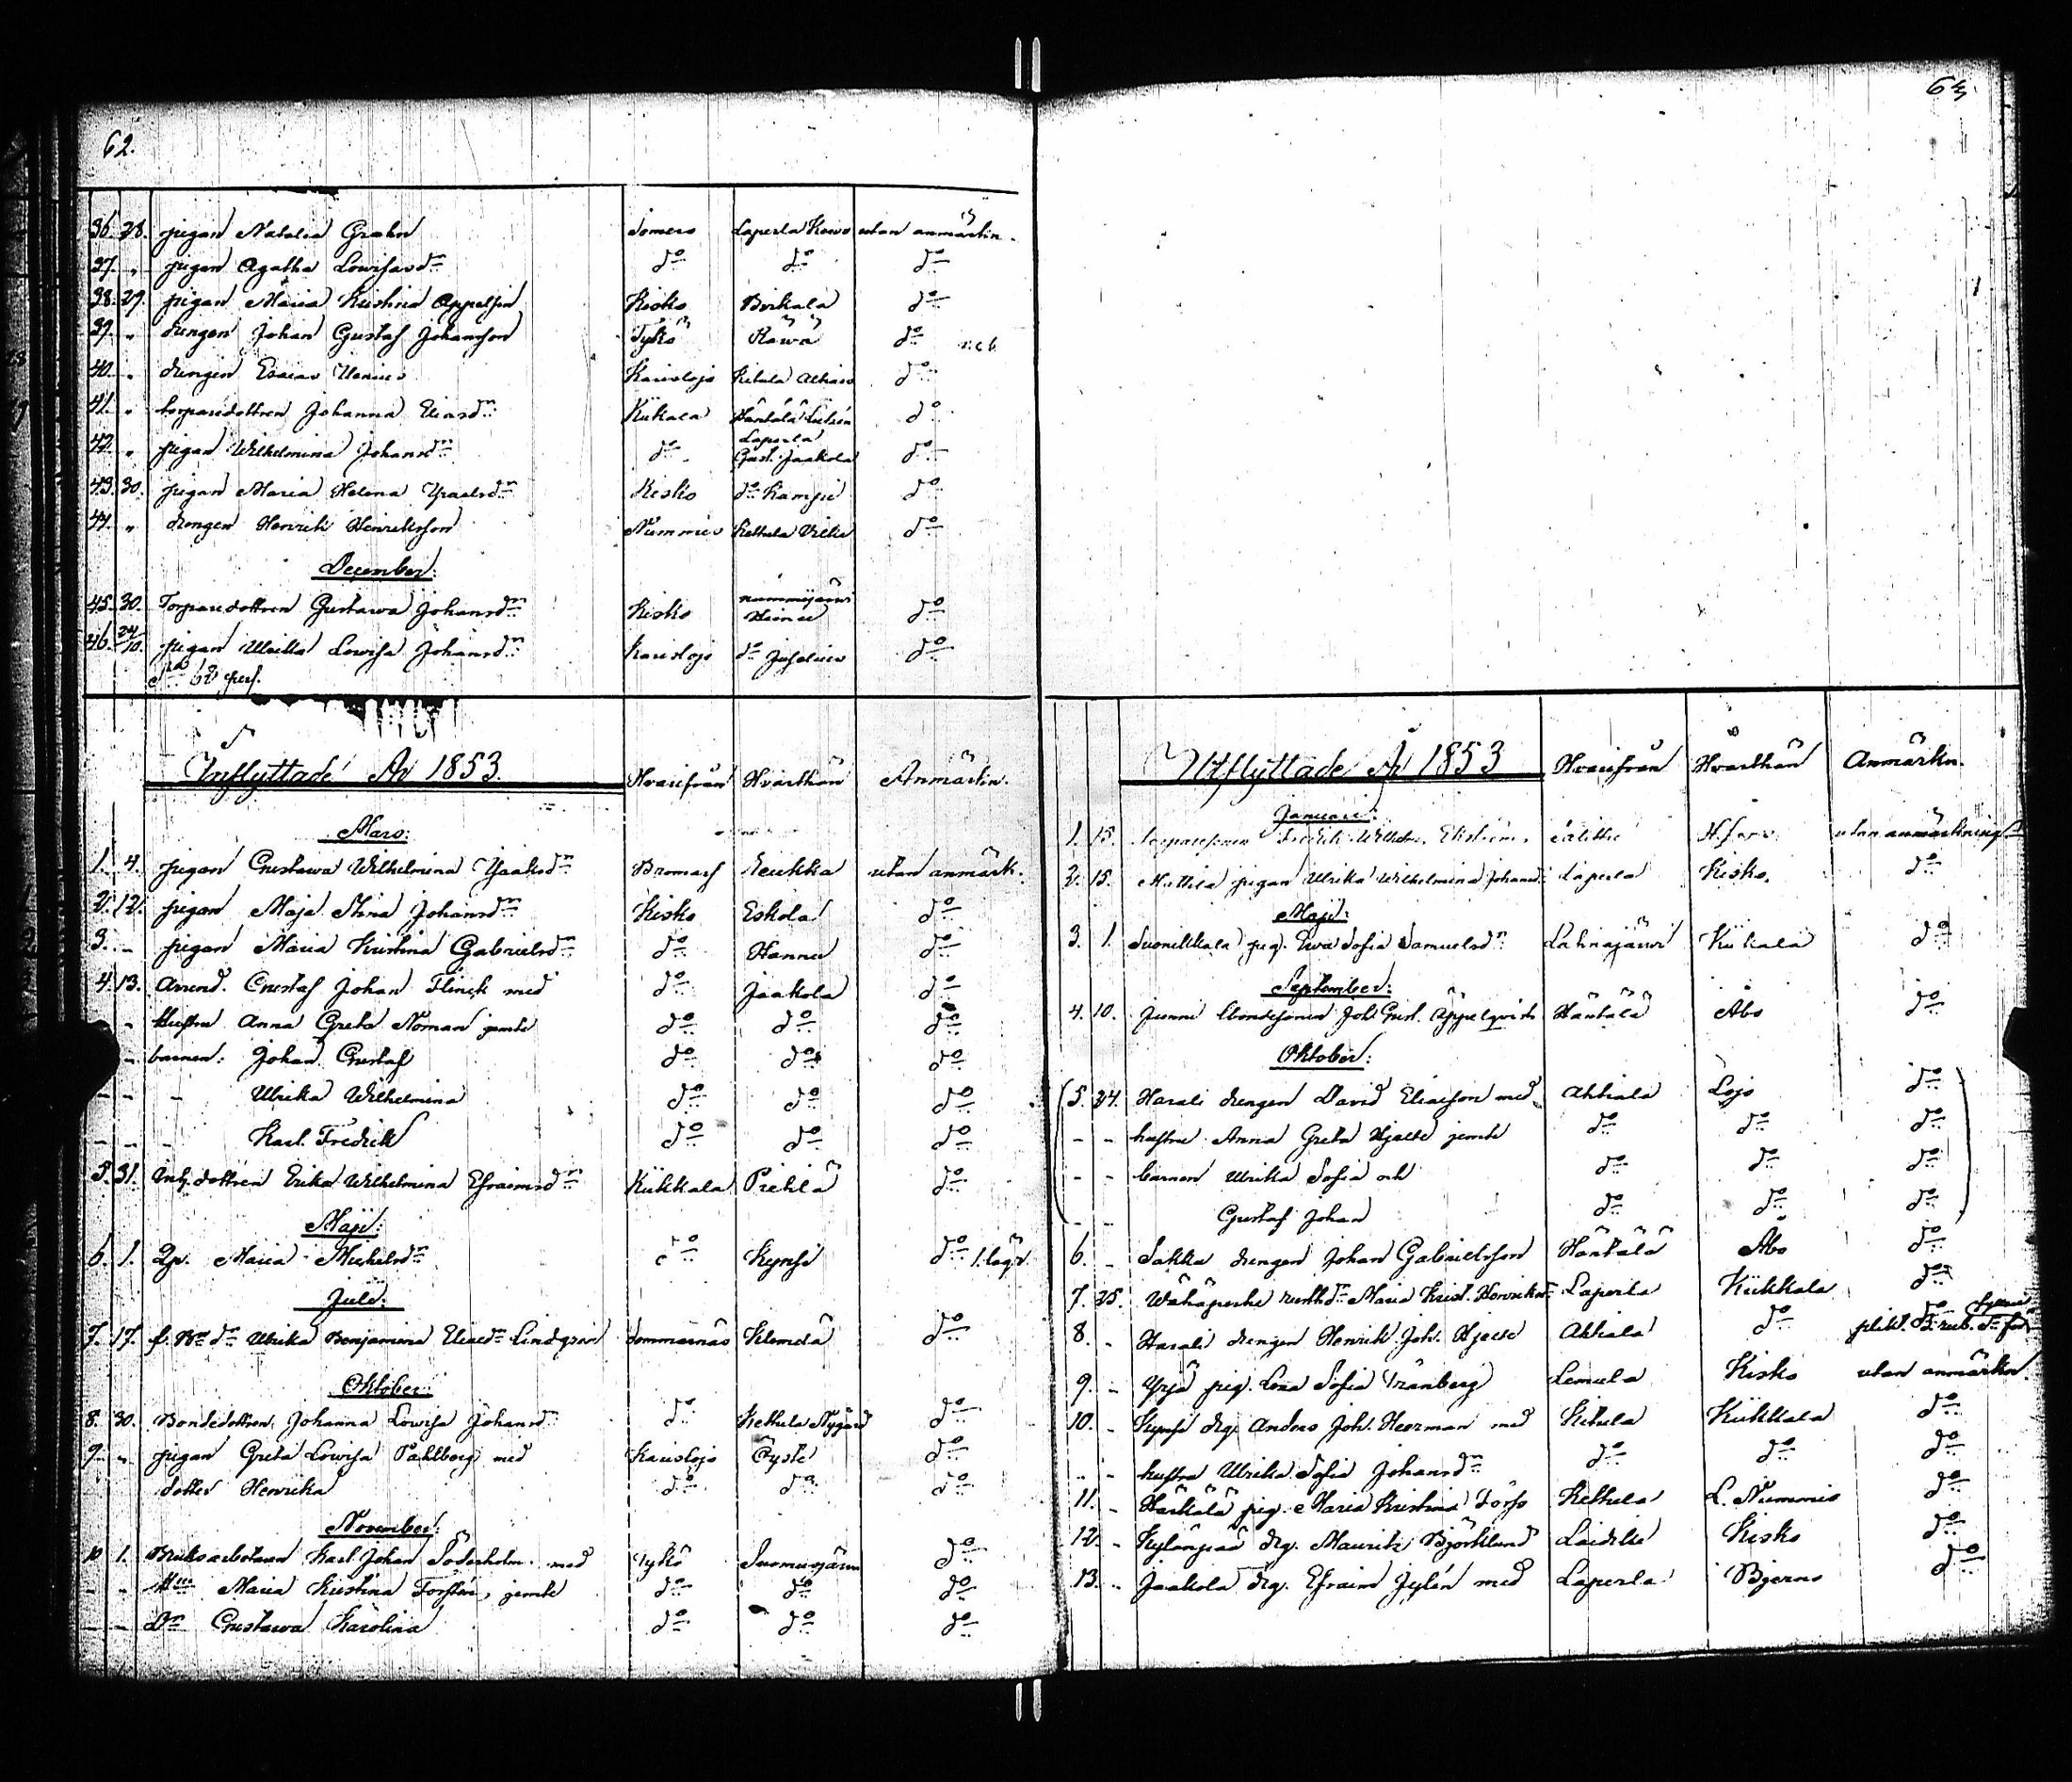 62.
36. 28. pigan Natalia Grahn Somero Laperla Kewo utan anmärkn.
37. " pigan Agatha Lowisasdr do do do
38. 29. pigan Maria Kristina Appelgin Kisko Birkala do
39. " drengen Johan Gustaf Johansson Tykö Råwa do
40. " drengen Esaias Karislojo Ketula do
41. " torparedottren Johanna Eliasdr Kiikala Häntälä do
Laperla
42. " pigan Wilhelmina Johansdr do Gust. Jaakola do
43. 30. pigan Maria Helena Isaksdr Kisko do Kamppi do
44. " drengen Henrik Henriksson Nummis Kettula Villa do
December:
45. 30. Torparedottren Gustawa Johansdr Kisko do
46. 24/10. pigan Ulrika Lowisa Johansdr Karislojo do do
Sa 62 pers.
Inflyttade År 1853. Hvarifrån Hvarthän Anmärkn.
Mars:
1. 4. pigan Gustawa Wilhelmina Isaksdr Bromarf Leukka utan anmärk.
2. 12. pigan Maja Stina Johansdr Kisko Eskola do
3. - pigan Maria Kristina Gabrielsdr do Hannu do
4. 13. Arrend. Gustaf Johan Flinck med do Jaakola do
- Hustru Anna Greta Noman jemte do do do
- barnen: Johan Gustaf do do do
- - - Ulrika Wilhelmina do do do
- - - Karl Fredrik do do do
5. 31. Inh.dottren Erika Wilhelmina Efraimsdr Kiikkala Piehlä do
Maji:
6. 1. Maria Michelsdr do Kynsi do
Juli:
7. 17. Ulrika Benjamina Lindqvist Sommarnäs Klemelä do
Oktober:
8. 30. Bondedottren Johanna Lowisa Johansdr do Kettula Nygård do
9. " pigan Greta Lowisa Pahlberg med Karislojo Öyste do
dotter Henrika do do do
November:
10. 1. Bruksarbetaren Karl Johan Söderholm med Tykö Suomusjärvi do
- - Hu Maria Kristina Forsten, jemte do do do
- - Dr Gustawa Karolina do do do
63
Utflyttade År 1853 Hvarifrån Hvarthän Anmärkn.
Januari:
1. 15. Torparesonen Fredrik Wilhelm Ekström, H.fors utan anmärkning
2. 15. Mattila pigan Ulrika Wilhelmina Johansd: Laperla Kisko. do
Maji:
3. 1. pig. Ewa Sofia Samuelsdr Lahnajärwi Kiikala do
September:
4. 10. Junni Bondesonen Joh. Gust. Appelqvist Häntälä Åbo do
Oktober:
5. 24. Harali drengen David Eliasson med Ahtiala Lojo do
- - hustru Anna Greta Hjelte jemte do do do
- - barnen Ulrika Sofia och do do do
- - Gustaf Johan do do do
6. - Sakka drengen Johan Gabrielsson Häntälä Åbo do
7. 25. Maria Krist. Henriksdr Laperla Kiikkala do
8. - Harali drengen Henrik Joh. Hjelte Ahtiala do
9. - Yrjö pig. Lena Sofia Tranberg Lemula Kisko utan anmärkn.
10. - Kynsi drg. Anders Joh. Heerman med Ketula Kiikkala do
- - hustru Ulrika Sofia Johansdr do do do
11. - Härkälä pig. Maria Kristina Forss Kettula L. Nummis do
12. - drg. Maurits Björklund Laidike Kisko do
13. - Jaakola drg. Efraim Jylén med Laperla Bjerno do